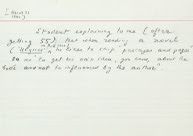 Student explaining to me (after
getting 55) that when reading a novel
he likes to skip passages and pages
so as to get his own idea, you know, about the
book and not be influenced by the author.